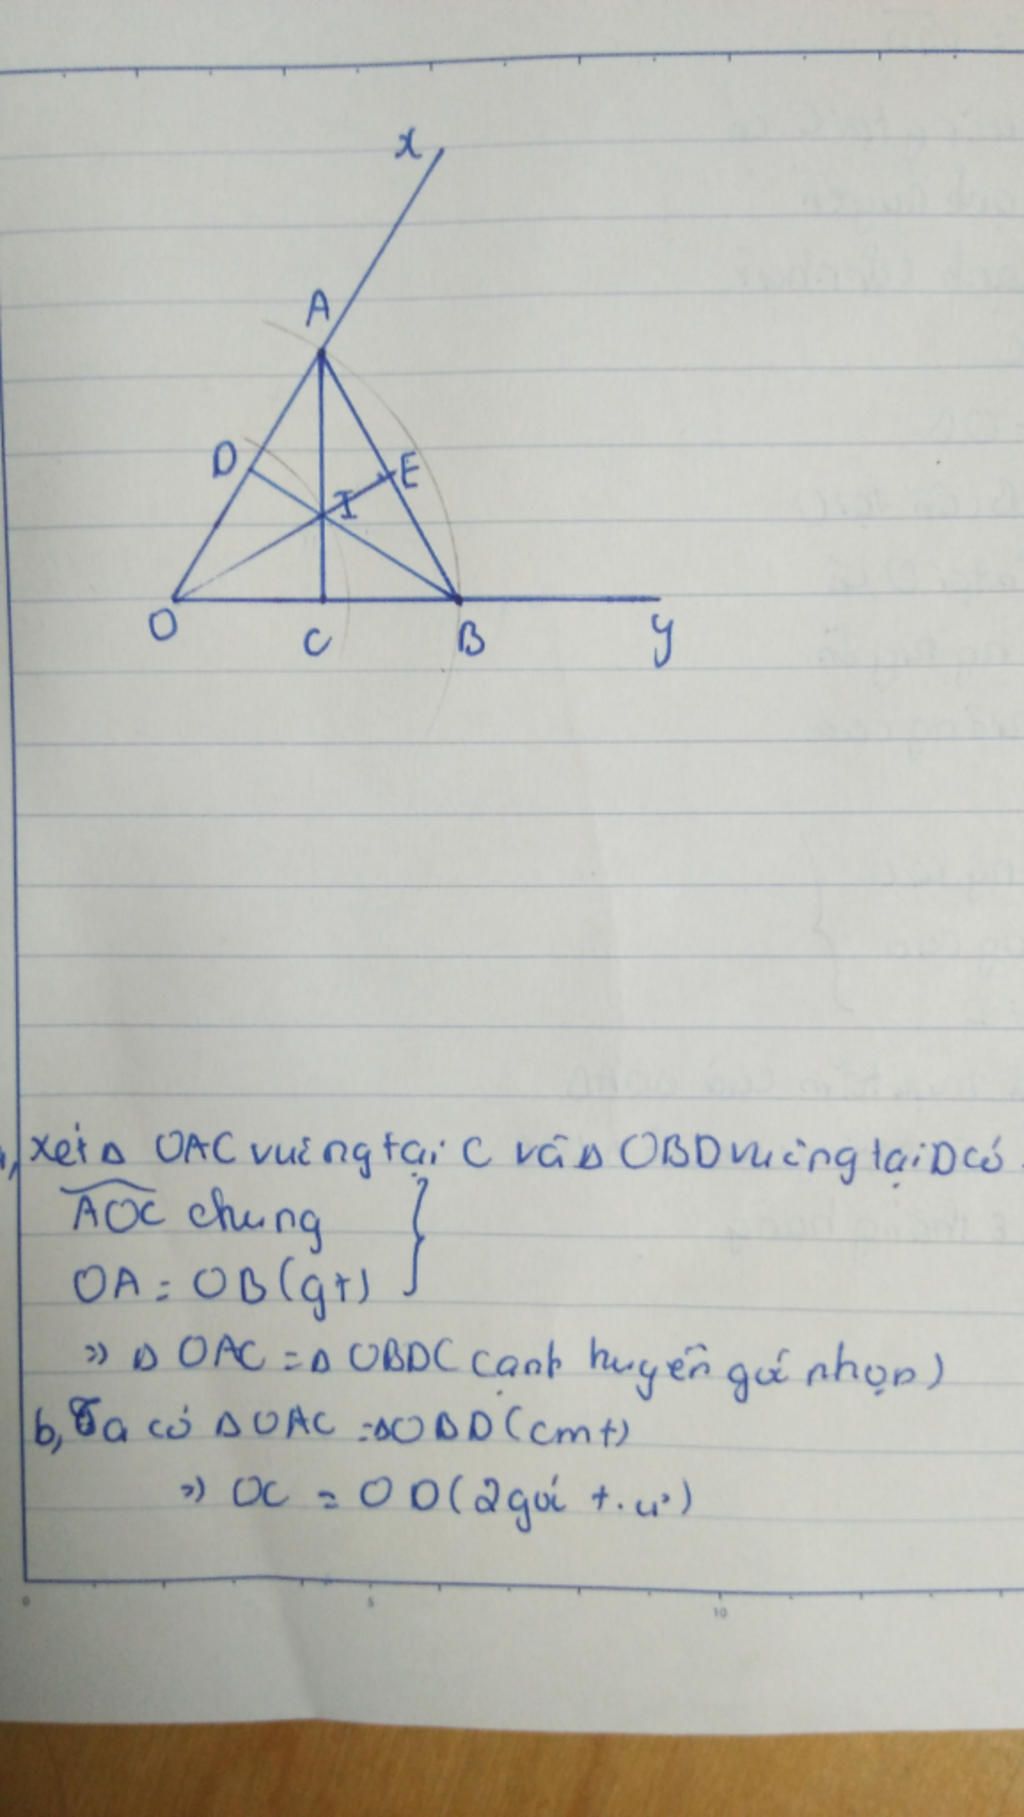 x
A
D
E
I
O
C
B
y
a, xét Δ OAC vuông tại C và Δ OBD vuông tại D có
AOC chung
OA = OB (gt)
=> Δ OAC = Δ OBD ( cạnh huyền góc nhọn)
b, Ta có Δ OAC = Δ OBD (cmt)
=> OC = OD (2 góc t.ư)
0 5 10